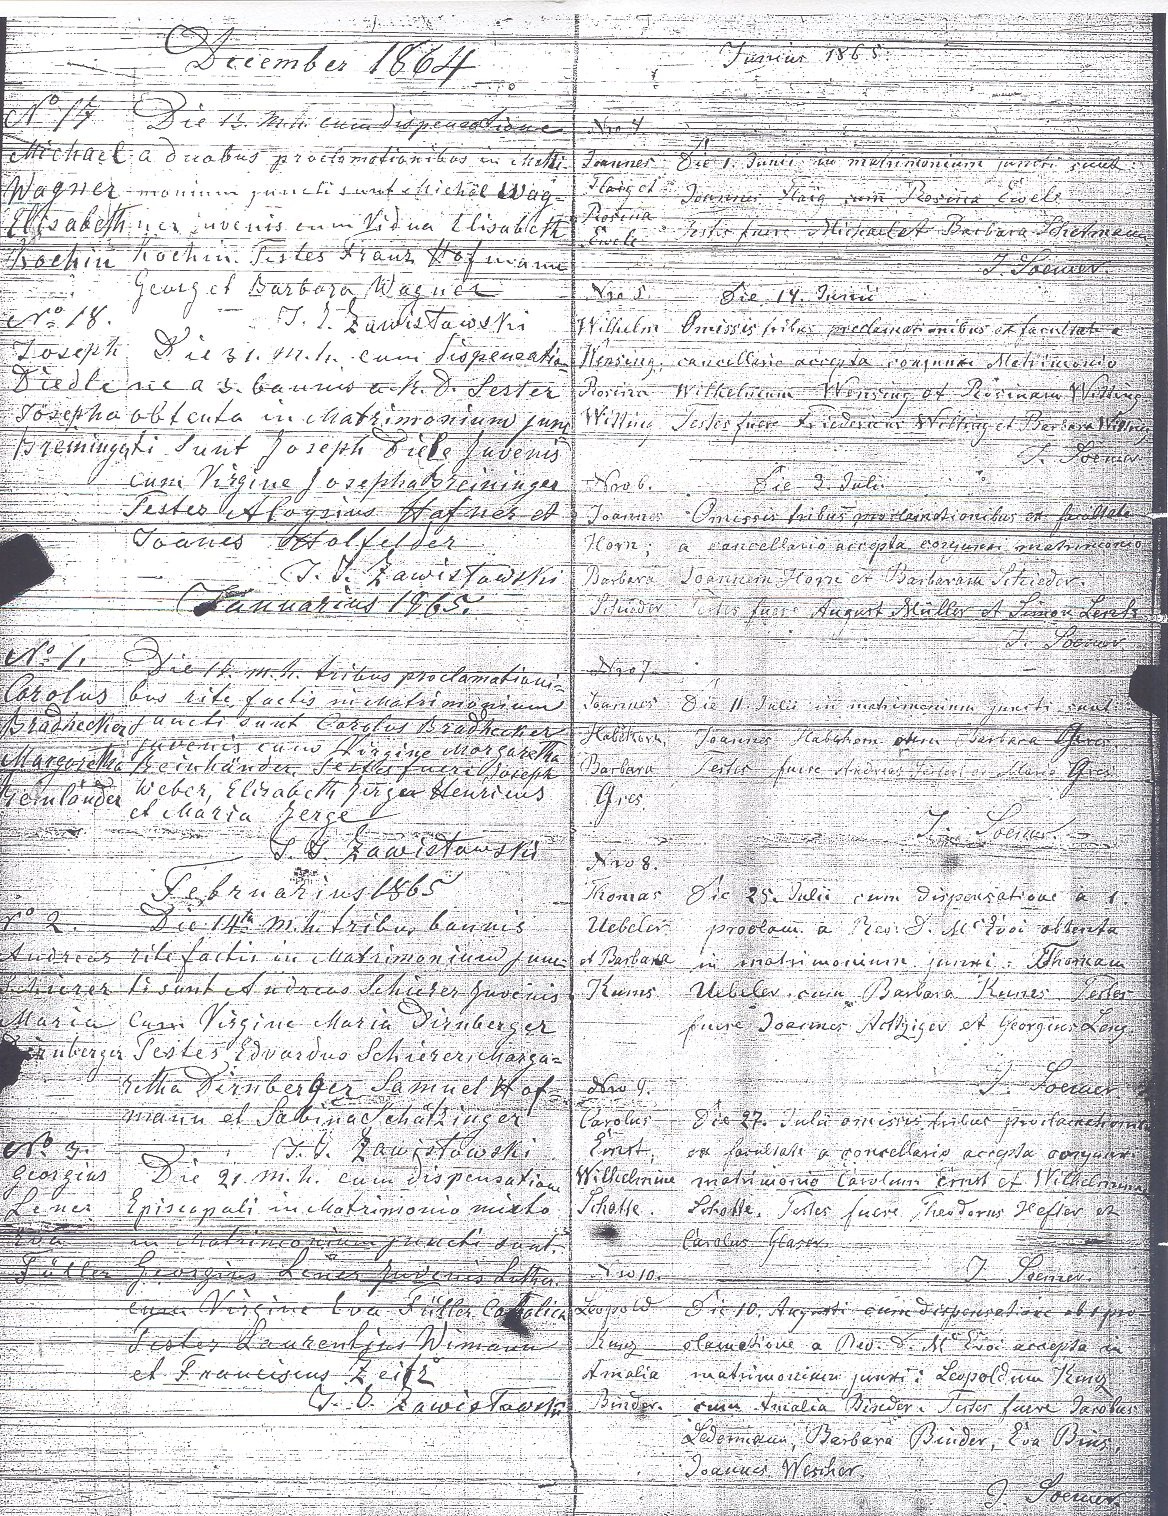 December 1864
No 17
Michael
Wagner
Elisabeth
Kochin
Die 15. m.h. cum dispensatione
a duobus proclamationibus in Matri-
monium juncti sunt Michael Wag-
ner juvenis cum Vidua Elisabeth
Kochin. Testes Franz Hofmann
Georg et Barbara Wagner
J. J. Zawistowski
No. 18.
Joseph
Diedle
Josepha
Breininger
Die 31. m.h. cum dispensatio-
ne a 3. bannis a R. D. Sester
obtenta in Matrimonium junc
ti sunt Joseph Diele Juvenis
cum Virgine Josepha Breininger
Testes Aloysius Hafner et
Joanes Holfelder
J. J. Zawistowski
Januarius 1865.
No. 1.
Carolus
Bradhecker
Margaretha
Die m.h. tribus proclamationi-
bus rite factis in Matrimonium
juncti sunt Carolus Bradhecker
juvenis cum Virgine Margaretha
Reinländer Testes fueri Joseph
Weber, Elisabeth Henricus
et Maria Jerge
J. J. Zawistowski
Februarius 1865
No 2.
Andreas
Schierer
Maria
Dirnberger
Die 14ta m.h. tribus bannis
rite factis in Matrimonium junc-
ti sunt Andreas Schierer Juvenis
cum Virgine Maria Dirnberger
Testes Edvarduo Schierer, Marga=
retha Dirnberger Samuel Hof=
mann et Sabina Schätzinger
J. J. Zawistowski
No. 3.
Georgius
Lener
Eva
Füller
Die 21. m.h. cum dispensatione
Episcopali in Matrimonio mixto
in Matrimonium juncti sunt.
Georgius Lener Juvenis Luther.
cum Virgine Eva Füller Catholica
Testes Laurentius Wimann
et Franciscus Zeitz
J. J. Zawistowski
Junius 1865.
Nro 4
Joannes
Flaig et
Rosina
Ewele
Die 1. Junii in matrimonium juncti sunt
Joannes Flaig cum Rosina Ewele
Testes fuere Michael et Barbara
J. Soemer.
Nro 5.
Wilhelm
Wensing,
Rosina
Witting
Die 14. Junii
Omissis tribus proclamationibus ex facultate a
cancellario accepta conjunxi Matrimonio
Wilhelmum Wensing et Rosinam Witting
Testes fuere Friedericus Witting et Barbara Witting
J. Soemer
Nro 6.
Joannes
Horn,
Barbara
Schieder
Die 3. Julii
Omissis tribus proclamationibus ex facultate
a cancellario accepta conjunxi matrimonio
Joannem Horn et Barbaram Schieder.
Testes fuere August Müller et Simon
J. Soemer
Nro 7
Joannes
Habekorn,
Barbara
Gres.
Die 11 Julii in matrimonium juncti sunt
Joannes Habekorn cum Barbara Gres
Testes fuere Andreas Maria Gres
J. Soemer.
Nro 8.
Thomas
Uebeler
et Barbara
Kums
Die 25. Julii cum dispensatione a 1.
proclam. a Rev. D. Mc Evoi obtenta
in matrimonium junxi: Thomam
Uebeler cum Barbara Kunes Testes
fuere Joannes et Georgius Leng
J. Soemer
Nro 9.
Carolus
Ernst,
Wilhelmine
Schotte.
Die 27. Julii omissis tribus proclamationibus
ex facultate a cancellario accepta conjunxi
matrimonio Carolum Ernst et Wilhelminam
Schotte. Testes fuere Theodorus Hefter et
Carolus Glaser.
J. Soemer.
Nro 10.
Leopold
Kunz
Amalia
Binder.
Die 10. Augusti cum dispensatione ab 1 pro-
clamatione a Rev. D. Mc Evoi accepta in
matrimonium junxi: Leopoldum Kunz
cum Amalia Binder. Testes fuere Jacobus
Ledermann, Barbara Binder, Eva Bins,
Joannes Wescher.
J. Soemer.